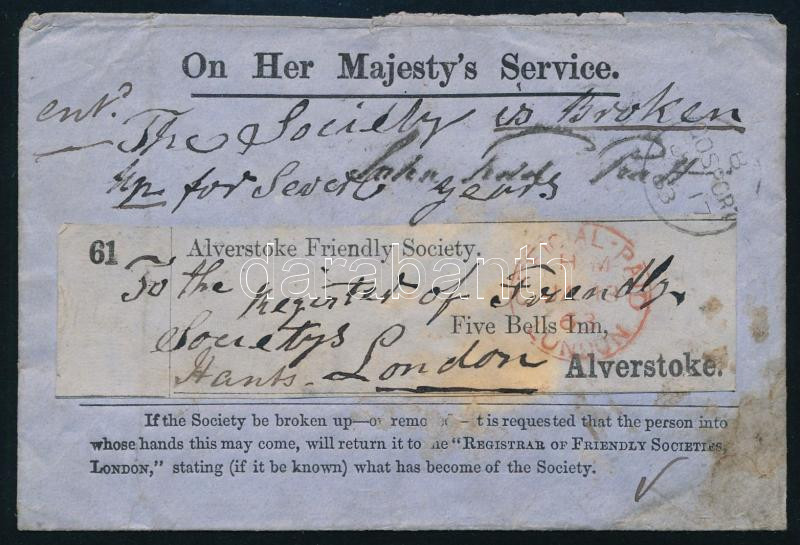 On Her Majesty's Service.
ent.d
The Society is Broken
up for Severl years
John
GOSPORT
B
17
63
61
Alverstoke Friendly Society.
To the Registed of Friendly
Societys
Five Bells Inn,
Hants. London
Alverstoke.
OFFICIAL-PAID
63
LONDON
darabanth
If the Society be broken up—or remo it is requested that the person into
whose hands this may come, will return it to he "REGISTRAR OF FRIENDLY SOCIETIES,
LONDON," stating (if it be known) what has become of the Society.